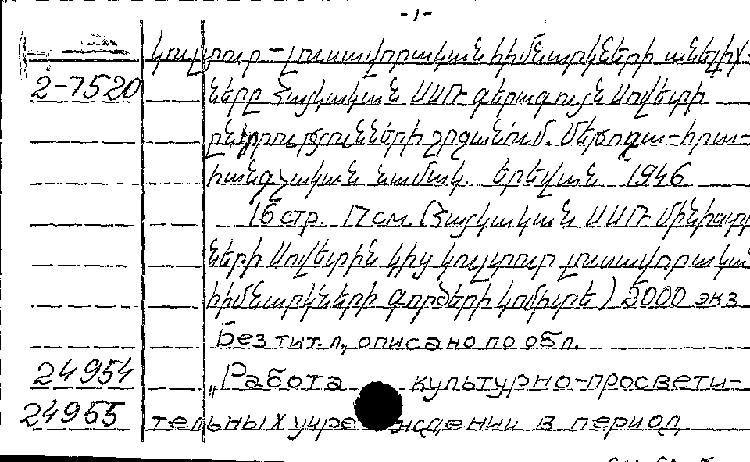 -1-
կուլտուր-լուսավորական հիմնարկների անելիք-
2-7520 ները Հայկական ՍՍՌ գերագույն Սովետի
ընտրությունների շրջանում. Մեթոդա-հրա-
հանգչական նամակ. Երևան 1946
16 стр. 17 см. (Հայկական ՍՍՌ Մինիստր
ների Սովետին կից կուլտուր լուսավորական
հիմնարկների գործերի կոմիտե) 5000 экз
Без тит. л, описано по обл.
24954 „Работа культурно-просвети-
24955 тельных учреждении в период